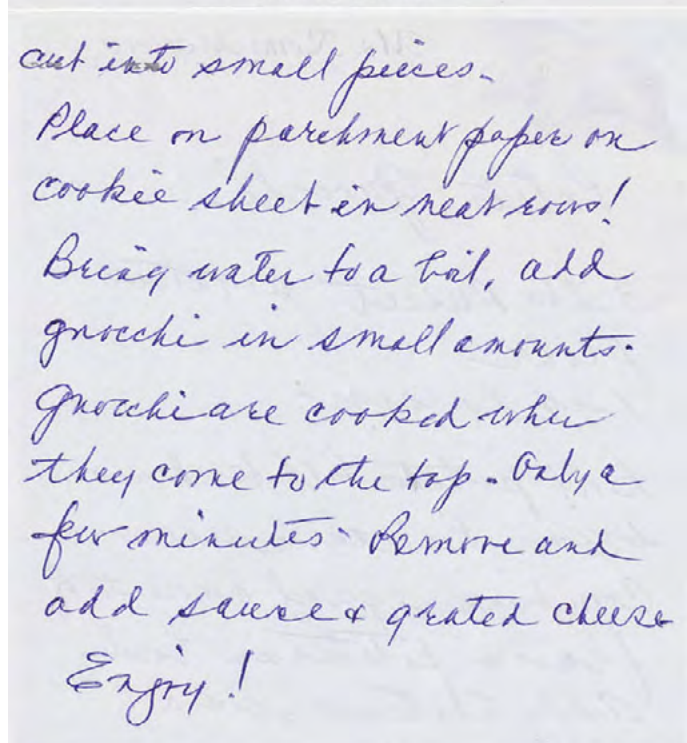 cut into small pieces.
Place on parchment paper on
cookie sheet in neat rows!
Bring water to a boil, add
gnocchi in small amounts.
Gnocchi are cooked when
they come to the top. Only a
few minutes. Remove and
add sauce & grated cheese
Enjoy!